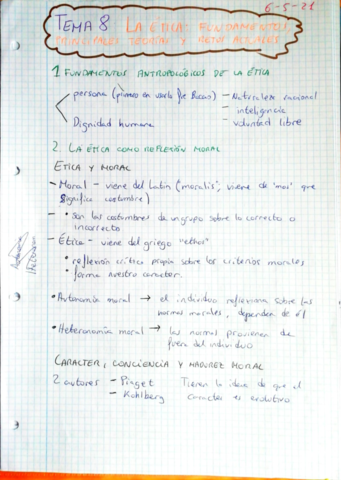 6-5-21
TEMA 8 LA ÉTICA: FUNDAMENTOS,
PRINCIPALES TEORÍAS Y RETOS ACTUALES
1 FUNDAMENTOS ANTROPOLÓGICOS DE LA ÉTICA
persona (primero en usarlo fue Boecio) - Naturaleza racional
- inteligencia
Dignidad humana - voluntad libre
2. LA ÉTICA COMO REFLEXIÓN MORAL
ETICA Y MORAL
- Moral - viene del Latín ("moralis", viene de "mos" que
significa costumbre)
- • Son las costumbres de un grupo sobre lo correcto o
incorrecto
- Ética - viene del griego "ethos"
• reflexión crítica propia sobre los criterios morales
• forma nuestro caracter.
• Autonomía moral → el individuo reflexiona sobre las
normas morales, dependen de él
• Heteronomía moral → las normas provienen de
fuera del individuo
CARACTER, CONCIENCIA Y MADUREZ MORAL
2 autores - Piaget Tienen la idea de que el
- Kohlberg caracter es evolutivo